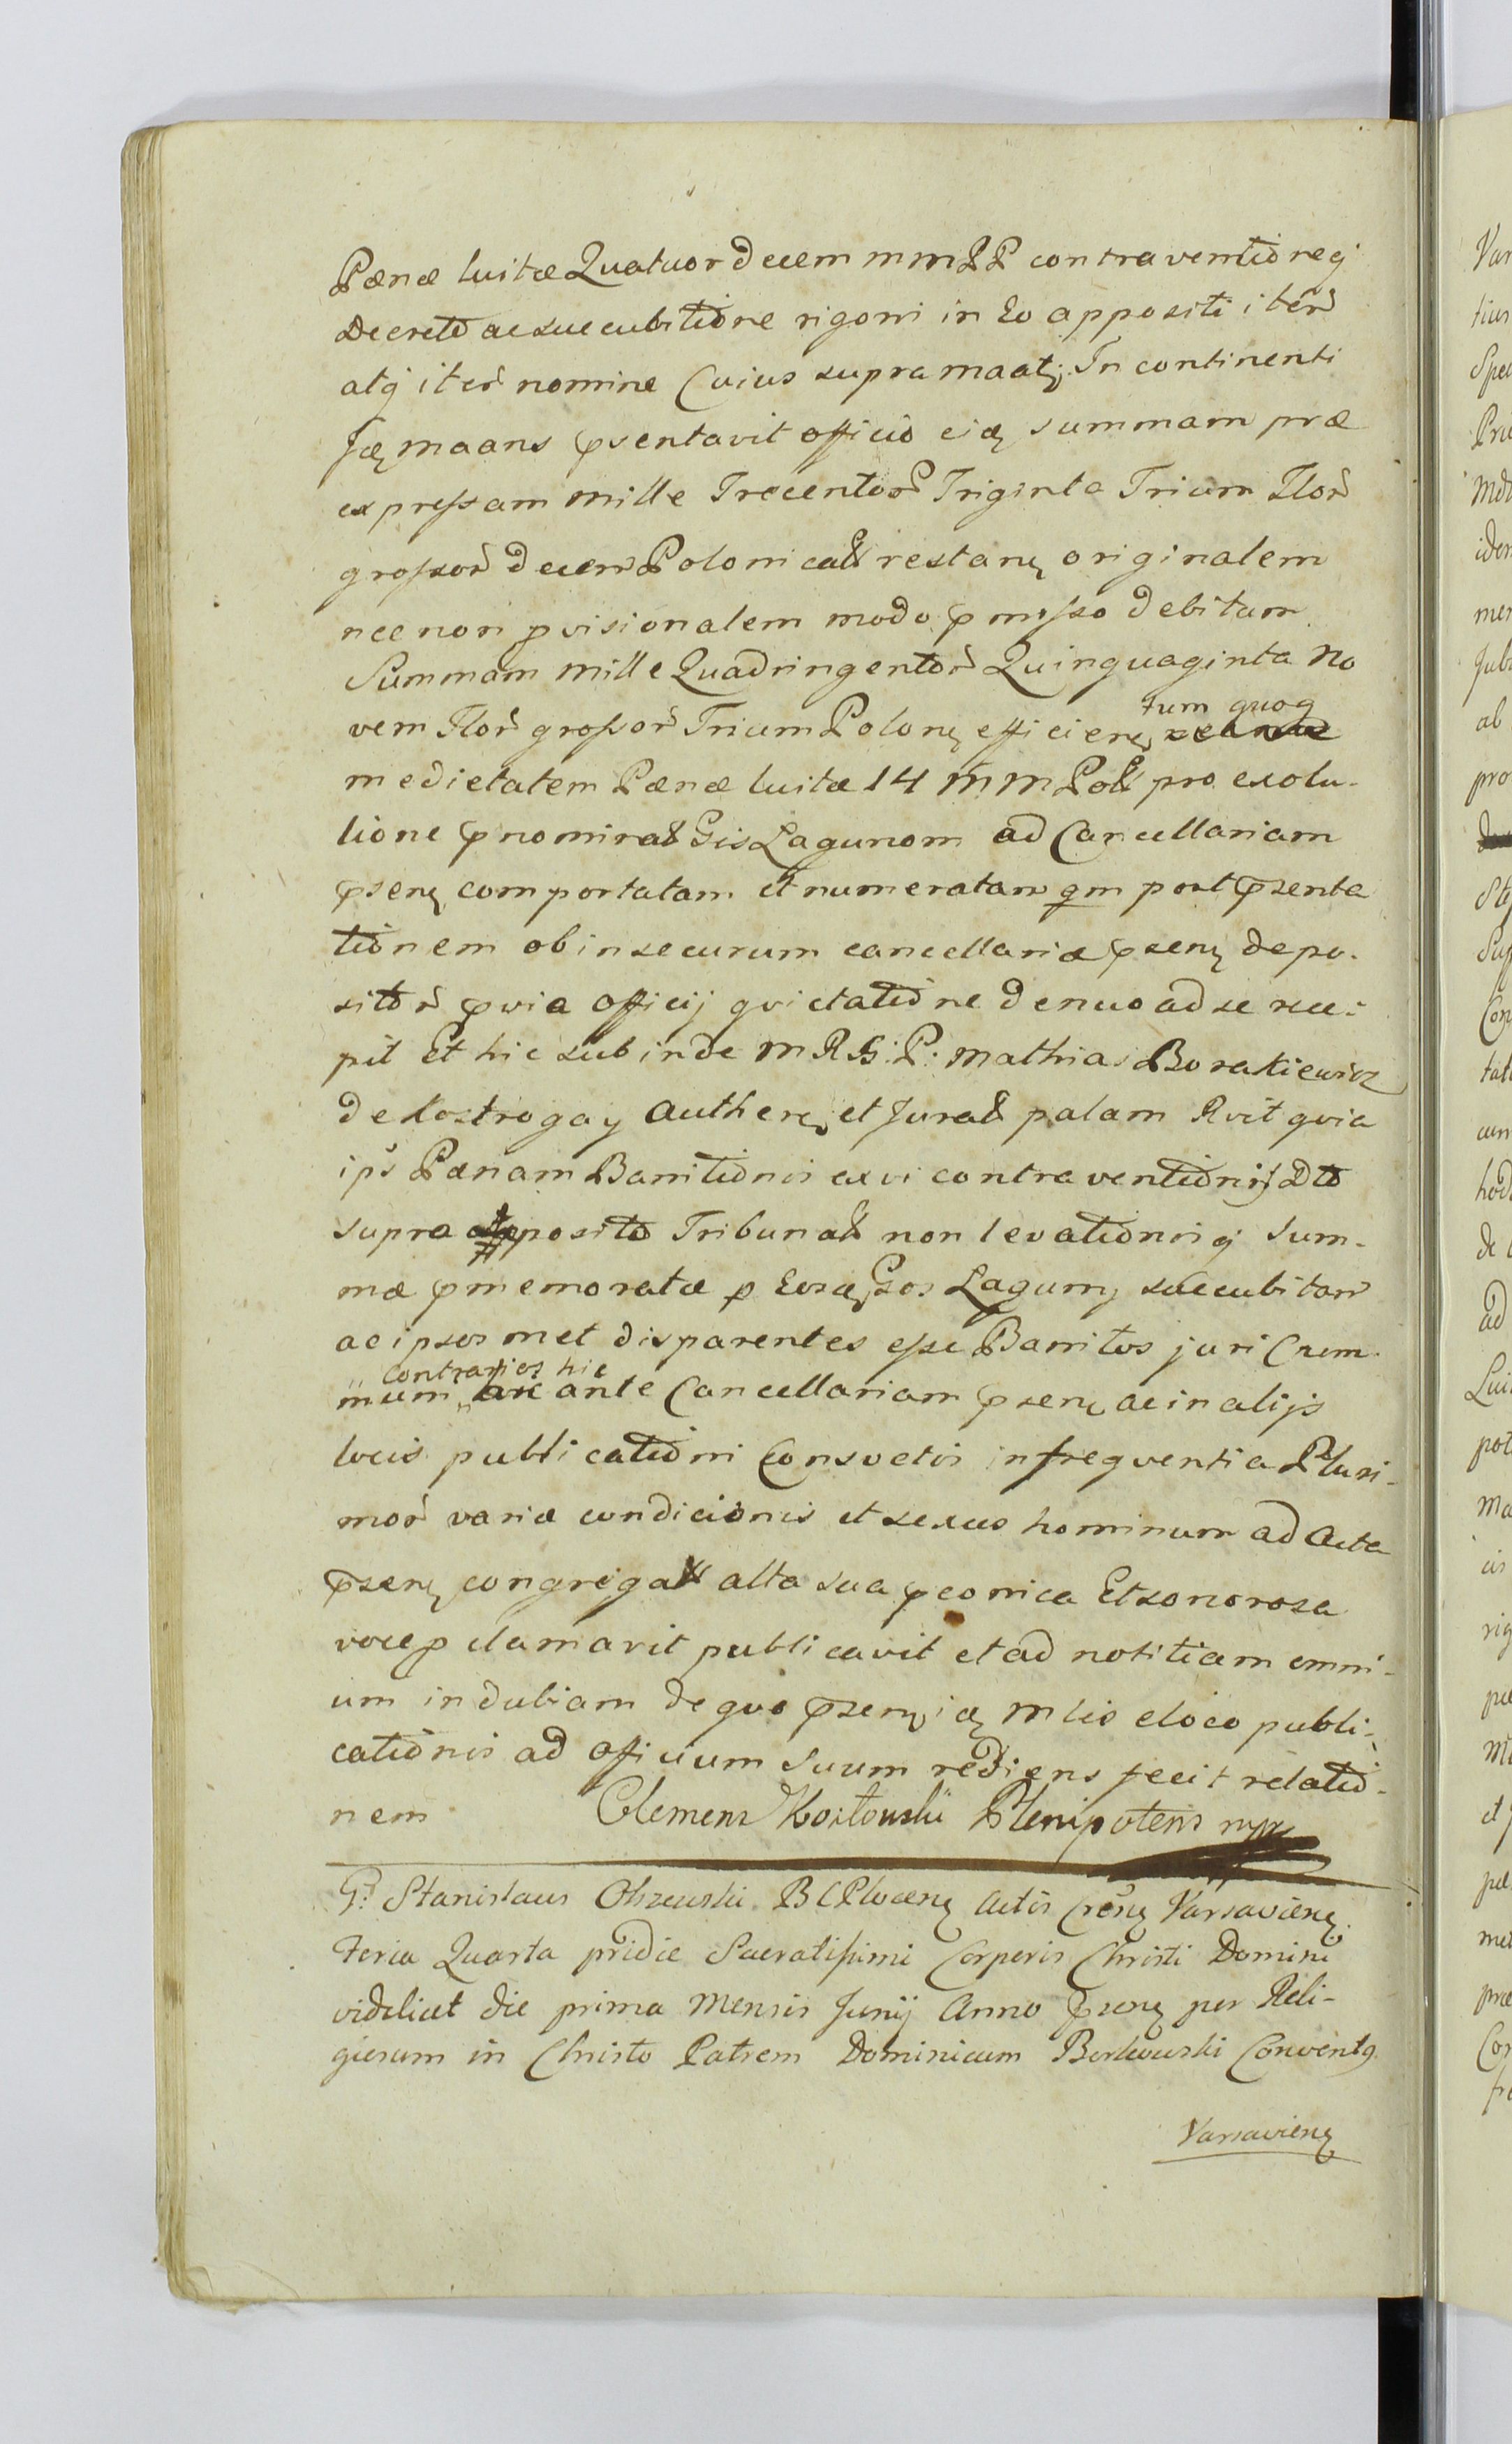 Pænæ luitæ Quatuordecem mmPP contraventioneqj
Decreto ac succubitione rigori in Eo appositi iterũ
atqj iterũ nomine Cuius supra maatj. In continenti
Jdę maans pñsentavit officio eidę summam præ
expressam mille Trecentorũ Triginta Trium Florũ
grossorũ decem Polonicał restanę originalem
nec non pvisionalem modo pmisso debitam
Summam mille Quadringentorũ Quinquaginta No
vem Florũ grossorũ Trium Polonę efficienę tum quoqj
medietatem Pænæ luitæ 14 mmPol pro exolu-
tione pnominat Gis Lagunom ad Cancellariam
psenę comportatam et numeratam qm post psenta
tionem ob insecurum cancellariæ psenę depo-
sitorũ pvia officij qvictatione denuo ad se rece-
pit Et hic subinde MRG: P: Mathias Borakiewicz
de Kostrogay Authenę et Jurał palam Rvit qvia
ips Pænam Banitionis ex vi contraventionis Dto
supra apposito Tribunał non levationisqj sum-
mæ pmemoratæ p Eosdę Gsos Lagunę succubitam
ac ipsos met disparentes esse Banitos juri Crim-
inum contrarios hic ante Cancellariam psenę ac in alijs
locis publicationi Consvetis in freqventia Pluri-
morũ variæ condicionis et sexus hominum ad Acta
psenę congregał alta sua pconica Et sonorosa
voce pclamavit publicavit et ad notitiam omni-
um indubiam de quo psenę idę mlis eloco publi-
cationis ad officium suum rediens fecit relatio-
nem Clemens Kozłowski Plenipotens mpr
G: Stanislaus Olszewski BCPlocenę Actis Crẽnę Varsavienę
Feria Quarta pridie Sacratissimi Corporis Christi Domini
videlicet die prima Mensis Junij Anno psenę per Reli-
giosum in Christo Patrem Dominicum Borkowski Conventq
Varsavienę